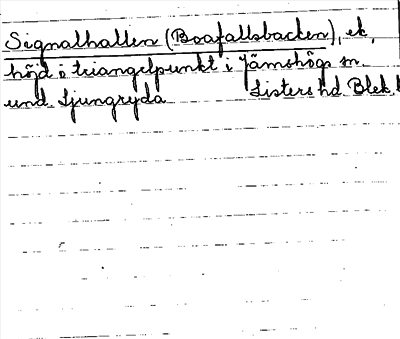 Signalhallen (Boafallsbacken), ek.
höjd o triangelpunkt i Jämshögs sn.
und. Ljungryda Listers hd. Blek. l